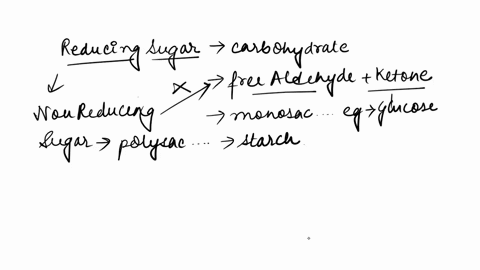 Reducing Sugar → carbohydrate
→ free Aldehyde + Ketone
Non Reducing → monosac.... eg → Glucose
Sugar → polysac .... → starch